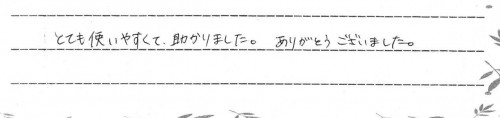 とても使いやすくて、助かりました。 ありがとうございました。